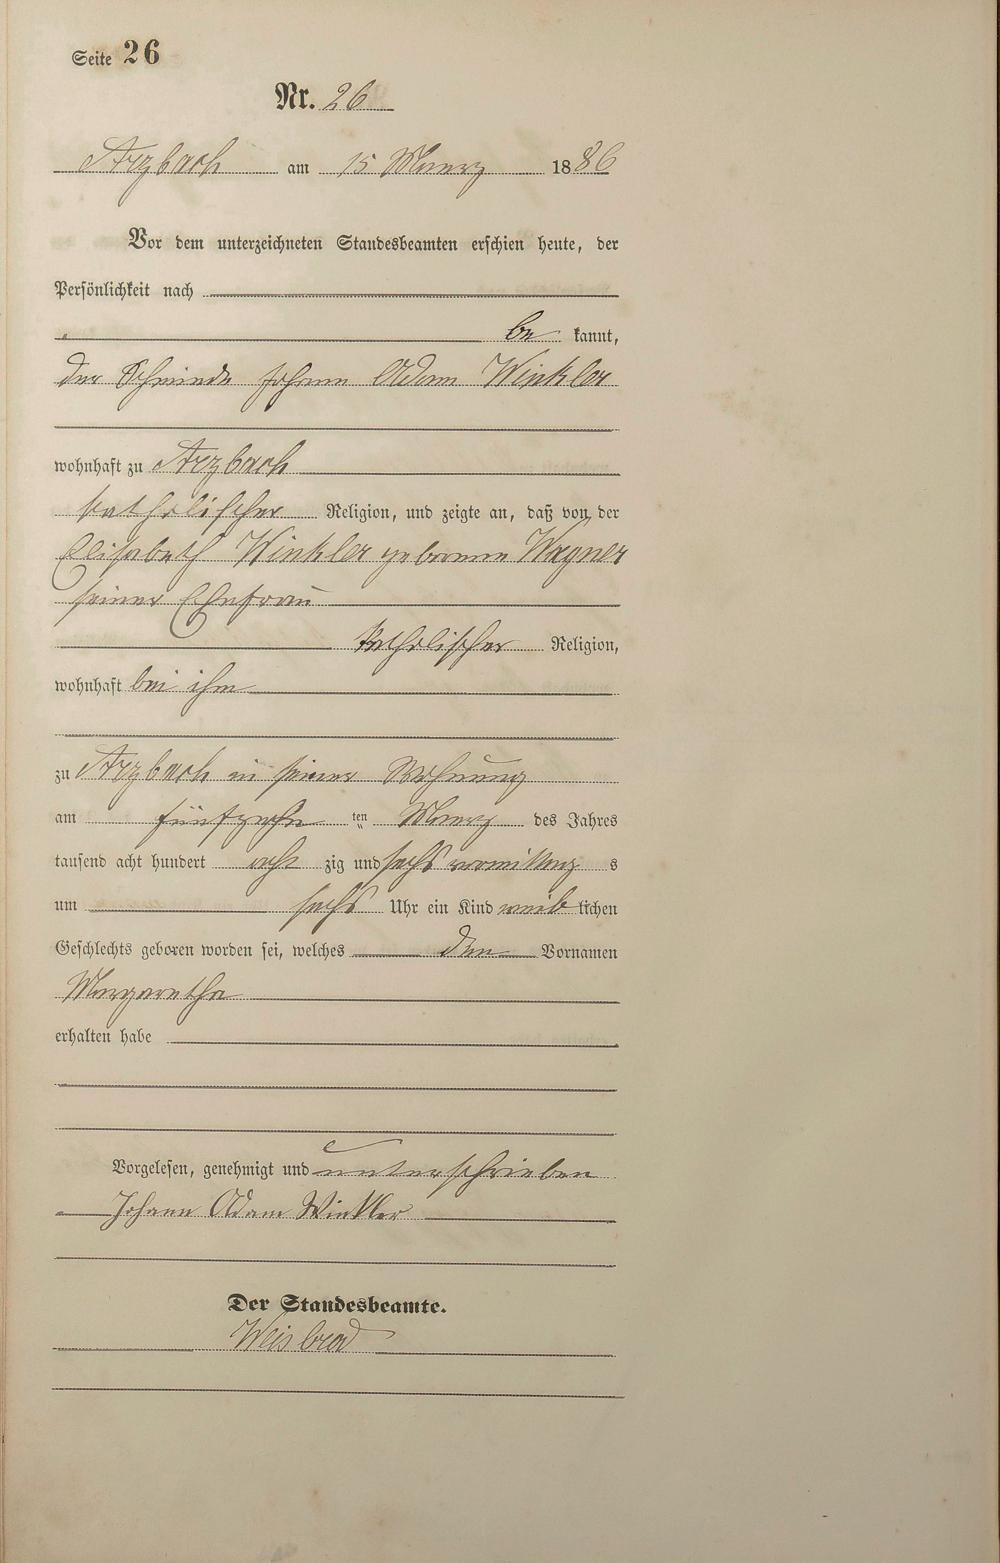 Seite 26
Nr. 26
Arzbach am 15 Maerz 1886
Vor dem unterzeichneten Standesbeamten erschien heute, der
Persönlichkeit nach
be kannt,
der Schmiede Johann Adam Winkler
wohnhaft zu Arzbach
katholischer Religion, und zeigte an, daß von der
Elisabeth Winkler geborene Wagner
seiner Ehefrau
katholischer Religion,
wohnhaft bei ihm
zu Arzbach in seiner Wohnung
am fünfzehn ten Maerz des Jahres
tausend acht hundert acht zig und sechs vormittag s
um sechs Uhr ein Kind weib lichen
Geschlechts geboren worden sei, welches den Vornamen
Margarethe
erhalten habe
Vorgelesen, genehmigt und unterschrieben
Johann Adam Winkler
Der Standesbeamte.
Weisbrod